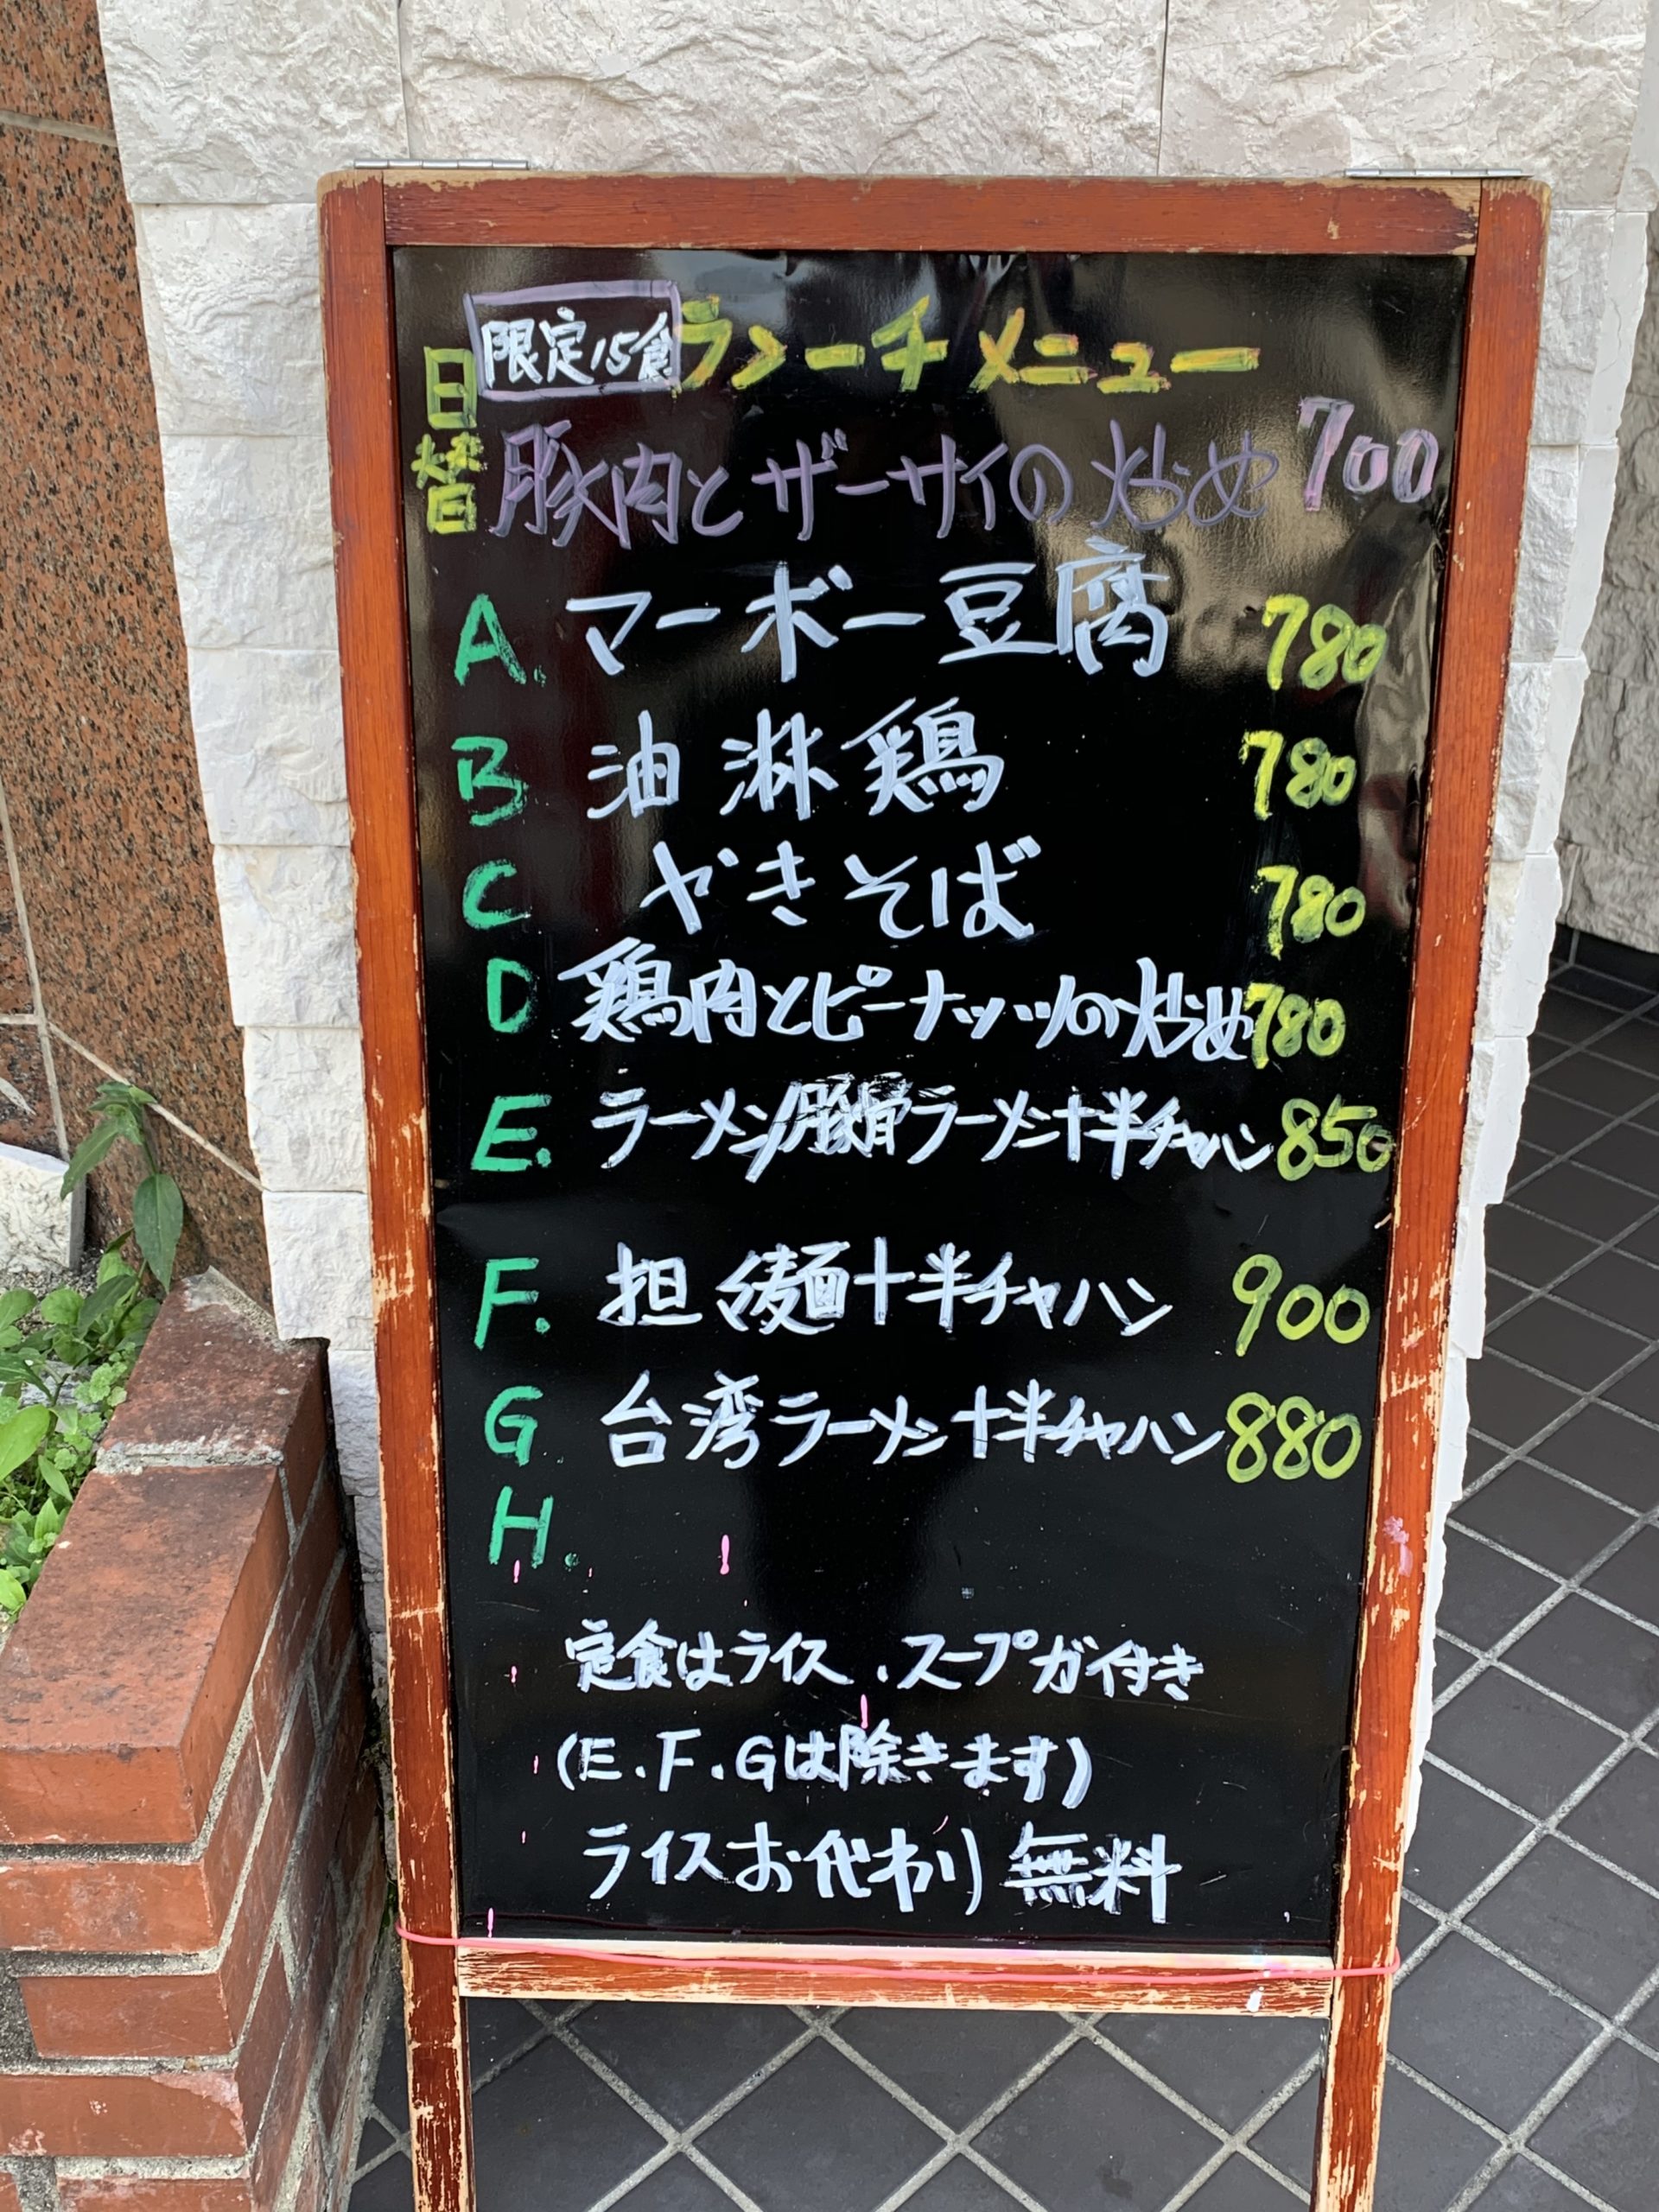 限定15食 ランチメニュー
日替 豚肉とザーサイの炒め 700
A. マーボー豆腐 780
B 油淋鶏 780
C やきそば 780
D 鶏肉とピーナッツの炒め 780
E. ラーメン/豚骨ラーメン+半チャハン 850
F. 担々麺+半チャハン 900
G 台湾ラーメン+半チャハン 880
H.
定食はライス.スープが付き
(E.F.Gは除きます)
ライスお代わり無料